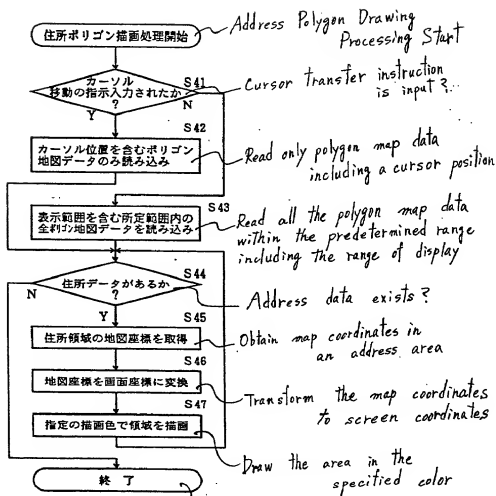 住所ポリゴン描画処理開始
Address Polygon Drawing
Processing Start
カーソル
移動の指示入力されたか
?
S41
N
Y
Cursor transfer instruction
is input?..
S42
カーソル位置を含むポリゴン
地図データのみ読み込み
Read only polygon map data
including a cursor position
S43
表示範囲を含む所定範囲内の
全ポリゴン地図データを読み込み
Read all the polygon map data
within the predetermined range
including the range of display
S44
住所データがあるか
?
N
Y
Address data exists?
S45
住所領域の地図座標を取得
Obtain map coordinates in
an address area
S46
地図座標を画面座標に変換
Transform the map coordinates
to screen coordinates
S47
指定の描画色で領域を描画
Draw the area in the
specified color
終了